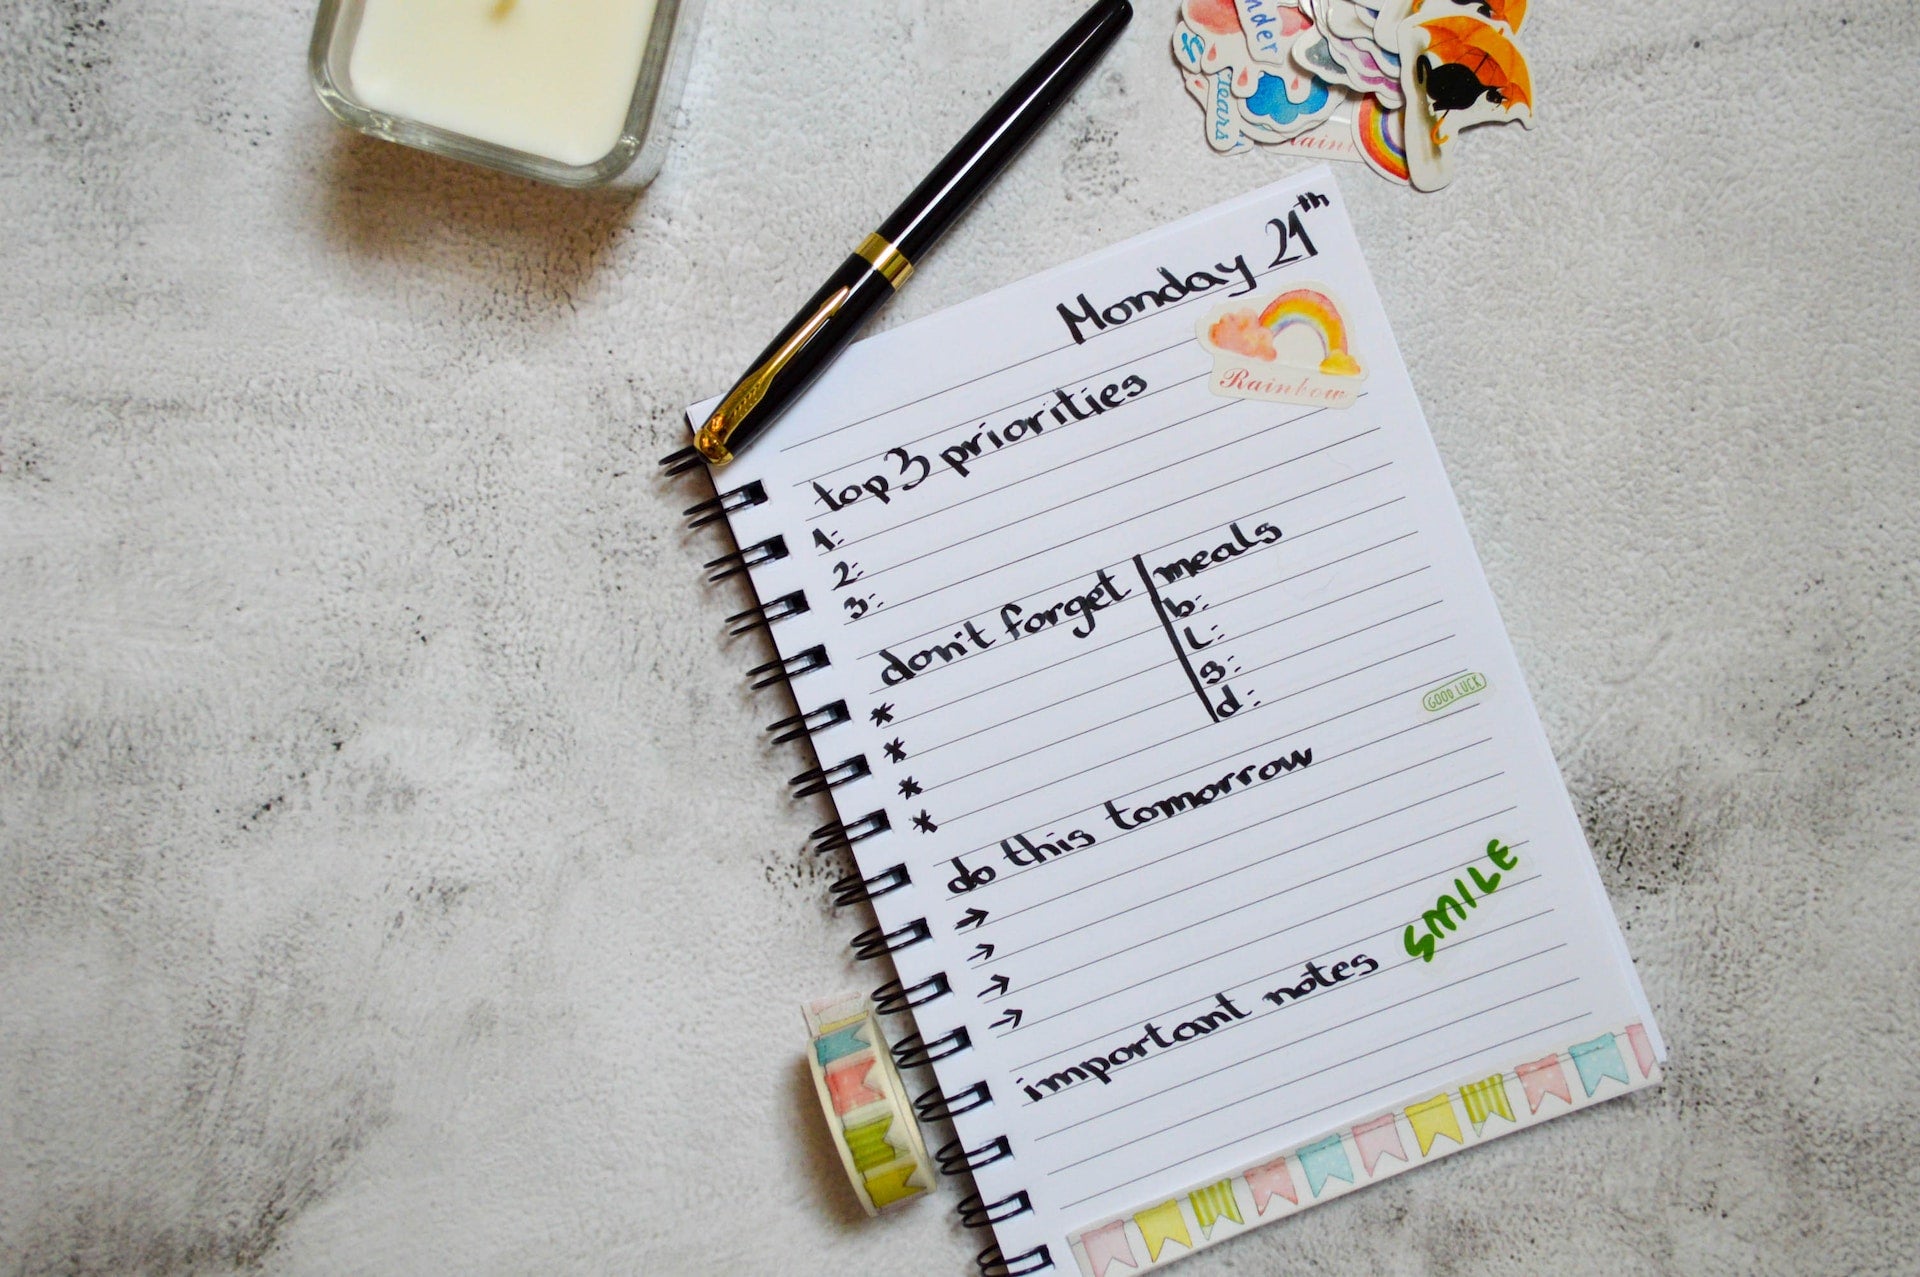 Monday 21th
Rainbow
top 3 priorities
1:
2:
3:
don't forget
*
*
*
*
meals
b:
L:
s:
d:
GOOD LUCK
do this tomorrow
→
→
→
→
important notes
SMILE
Tears